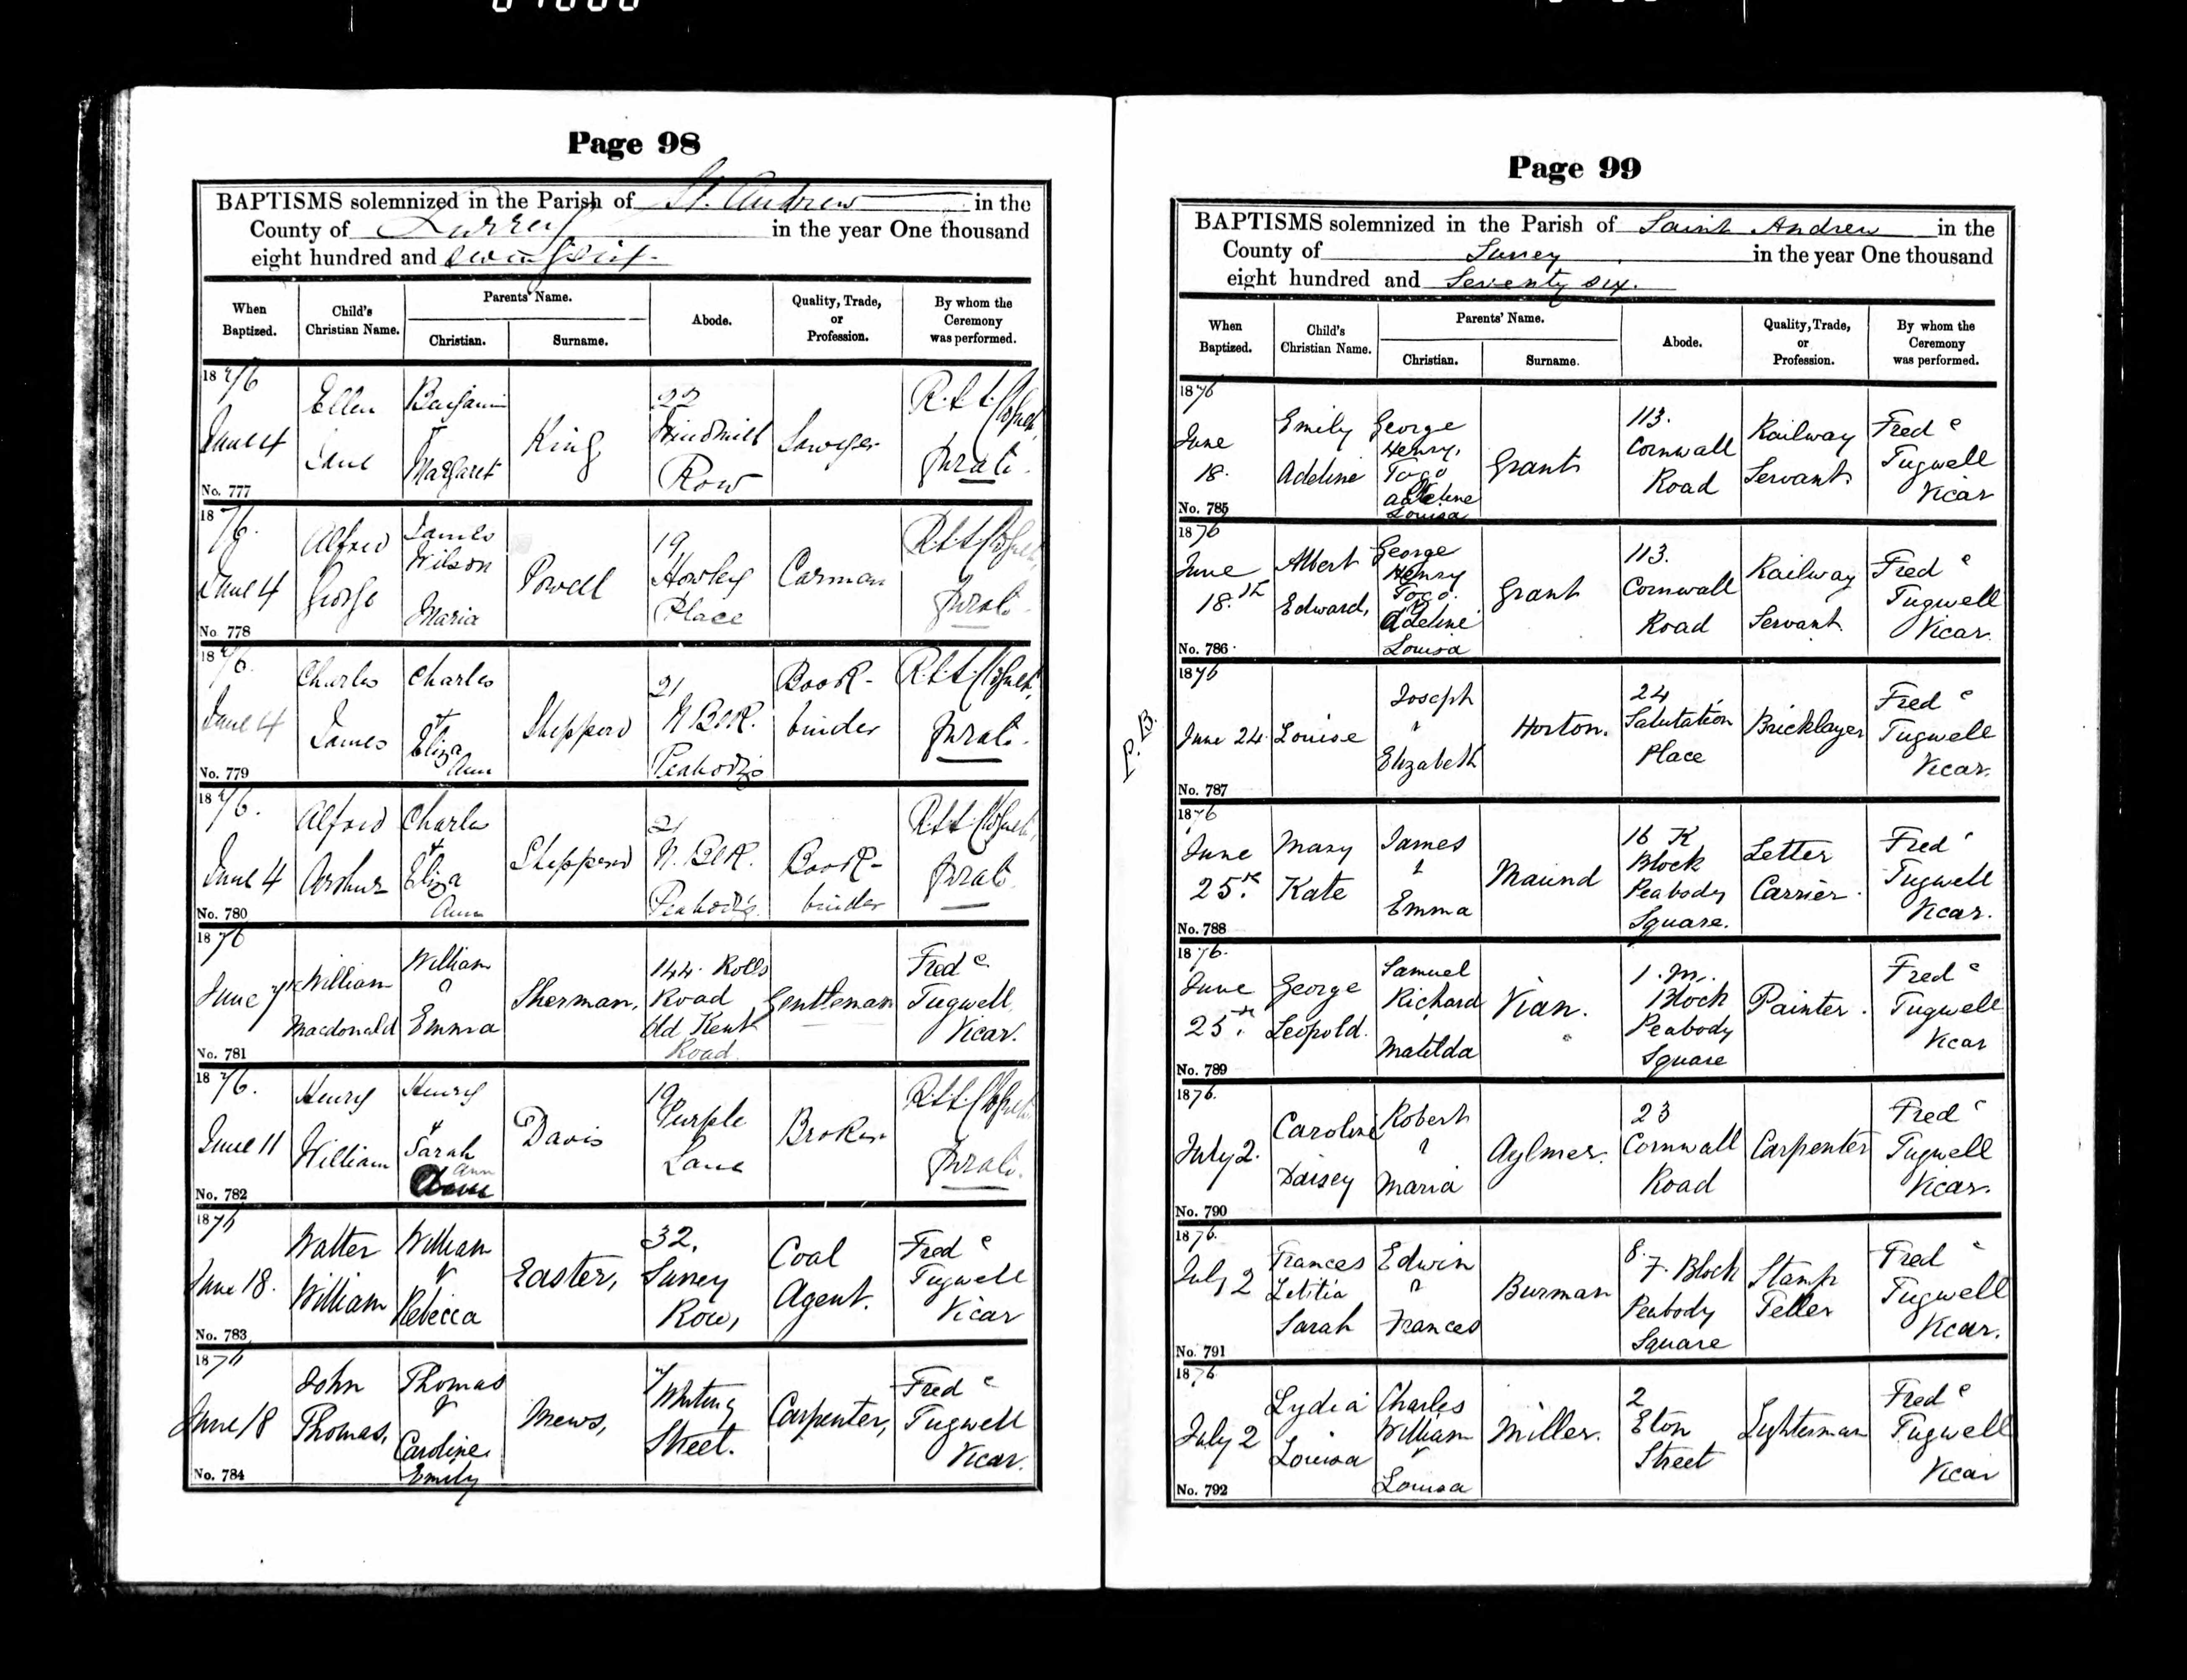 Page 98
BAPTISMS solemnized in the Parish of St. Andrew in the
County of Surrey in the year One thousand
eight hundred and seventy six
When Baptized. Child's Christian Name. Parents' Name. Christian. Surname. Abode. Quality, Trade, or Profession. By whom the Ceremony was performed.
1876 June 4
No. 777
Ellen Jane
Benjamin + Margaret
King
22 Windmill Row
Sawyer
Curate.
1876. June 4
No. 778
Alfred George
James Wilson Maria
Powell
19 Howley Place
Carman
Curate
1876. June 4
No. 779
Charles James
Charles + Eliza Ann
Shepperd
21 N. Block. Peabody's
Book-binder
Curate.
1876. June 4
No. 780
Alfred Arthur
Charles + Eliza Ann
Shepperd
21 N. Block. Peabody's.
Book-binder
Curate
1876 June 7th
No. 781
William Macdonald
William & Emma
Sherman,
144. Rolls Road Old Kent Road
Gentleman
Fredc. Tugwell Vicar.
1876. June 11
No. 782
Henry William
Henry + Sarah Ann
Davis
19 Purple Lane
Broker
Curate.
1876 June 18.
No. 783
Walter William
William & Rebecca
Easter,
32, Surrey Row,
Coal Agent.
Fredc Tugwell Vicar
1876 June 18
No. 784
John Thomas,
Thomas & Caroline Emily
Mews,
Whiting Street.
Carpenter,
Fredc Tugwell Vicar.
Page 99
BAPTISMS solemnized in the Parish of Saint Andrew in the
County of Surrey in the year One thousand
eight hundred and Seventy six.
When Baptized. Child's Christian Name. Parents' Name. Christian. Surname. Abode. Quality, Trade, or Profession. By whom the Ceremony was performed.
1876 June 18.
No. 785
Emily Adeline
George Henry, Togo & Adeline Louisa
Grant
113. Cornwall Road
Railway Servant
Fredc Tugwell Vicar
1876 June 18.th
No. 786
Albert Edward,
George Henry Togo. & Adeline Louisa
Grant
113. Cornwall Road
Railway Servant
Fredc Tugwell Vicar.
P.B.
1876 June 24
No. 787
Louise
Joseph & Elizabeth
Horton.
24 Salutation Place
Bricklayer
Fredc Tugwell Vicar.
1876 June 25.th
No. 788
Mary Kate
James & Emma
Maund
16 K Block Peabody Square.
Letter Carrier.
Fredc Tugwell Vicar.
1876. June 25.th
No. 789
George Leopold.
Samuel Richard & Matilda
Vian.
1. M. Block Peabody Square
Painter.
Fredc Tugwell Vicar
1876. July 2.
No. 790
Caroline Daisey
Robert & Maria
Aylmer.
23 Cornwall Road
Carpenter
Fredc Tugwell Vicar.
1876. July 2
No. 791
Frances Letitia Sarah
Edwin & Frances
Burman
8. F. Block Peabody Square
Stamp Teller
Fredc Tugwell Vicar.
1876 July 2
No. 792
Lydia Louisa
Charles William & Louisa
Miller.
2 Eton Street
Lighterman
Fredc Tugwell Vicar